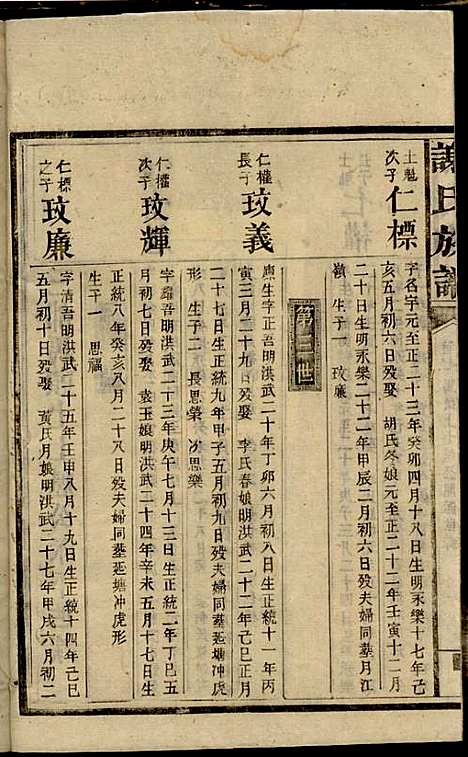 謝氏族譜
士魁
次子
仁標
字名宇元至正二十三年癸卯四月十八日生明永樂十七年己
亥五月初六日歿娶 胡氏冬娘元至正二十二年壬寅十二月
二十日生明永樂二十二年甲辰二月初六日歿夫婦同墓月江
嶺 生子一 玫廉
第二世
仁權
長子
玫義
庠生字正吾明洪武二十年丁卯六月初二日生正統十一年丙
寅三月二十九日歿娶 李氏春娘明洪武二十二年己巳正月
二十七日生正統九年甲子五月初九日歿夫婦同墓延塘冲虎
形 生子二 長思榮 次思樂
仁權
次子
玫輝
字耀吾明洪武二十三年庚午七月十三日生正統二年丁巳五
月初七日歿娶 袁玉娘明洪武二十四年辛未五月十七日生
正統八年癸亥八月二十八日歿夫婦同墓延塘冲虎形
生子一 思福
仁標
之子
玫廉
字清吾明洪武二十五年壬申八月十九日生正統十四年己巳
五月初十日歿娶 黃氏月娘明洪武二十七年甲戌六月初二